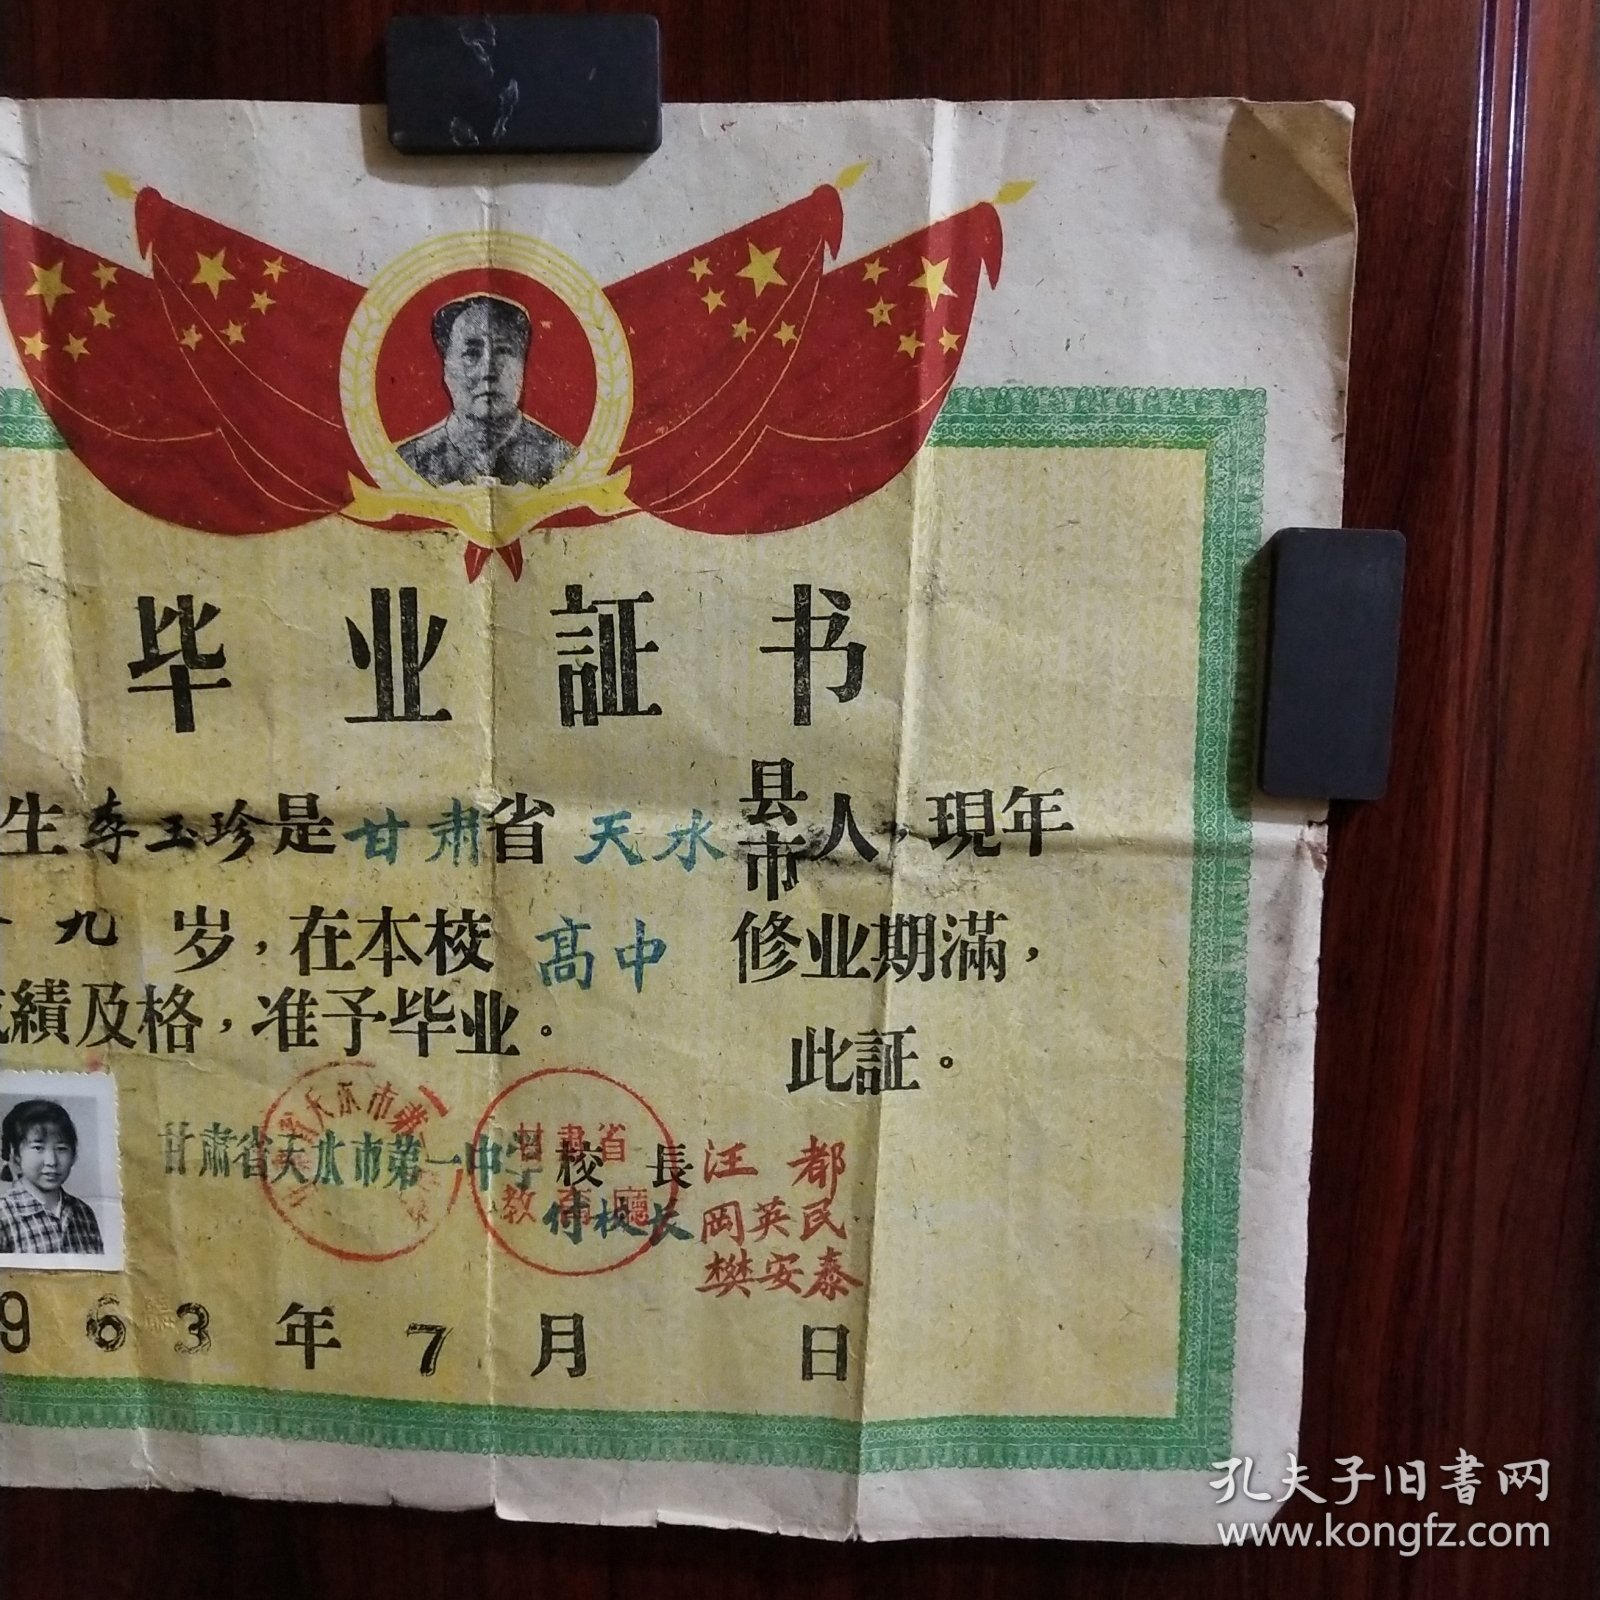 毕业証书
生李玉珍是甘肃省天水县市人，現年
九岁，在本校高中修业期滿，
績及格，准予毕业。
此証。
甘肃省天水市第一中学校長汪都
付校长岡英民
樊安泰
甘肃省
教育廳
963年7月日
孔夫子旧書网
www.kongfz.com